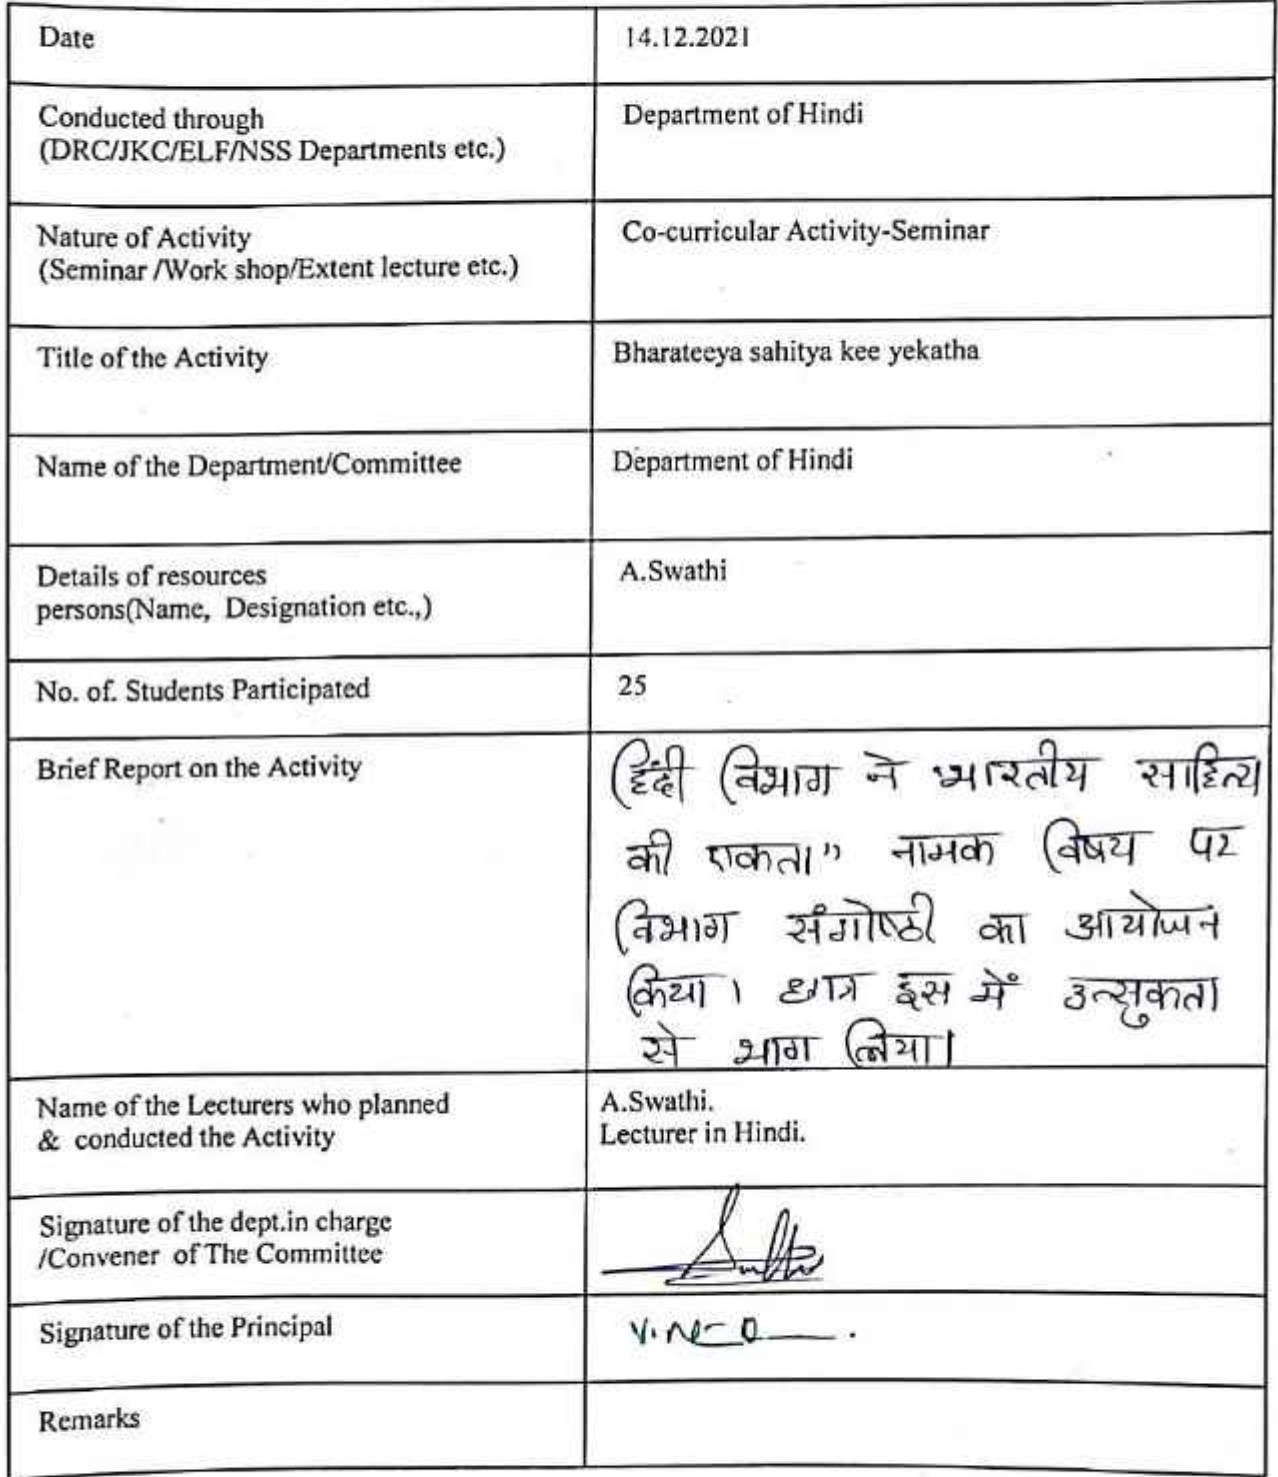 Date 14.12.2021
Conducted through Department of Hindi
(DRC/JKC/ELF/NSS Departments etc.)
Nature of Activity Co-curricular Activity-Seminar
(Seminar /Work shop/Extent lecture etc.)
Title of the Activity Bharateeya sahitya kee yekatha
Name of the Department/Committee Department of Hindi
Details of resources A.Swathi
persons(Name, Designation etc.,)
No. of. Students Participated 25
Brief Report on the Activity
हिंदी विभाग ने भारतीय साहित्य
की एकता” नामक विषय पर
विभाग संगोष्ठी का आयोजन
किया। छात्र इस में उत्सुकता
से भाग लिया।
Name of the Lecturers who planned A.Swathi.
& conducted the Activity Lecturer in Hindi.
Signature of the dept.in charge
/Convener of The Committee
Signature of the Principal
Remarks